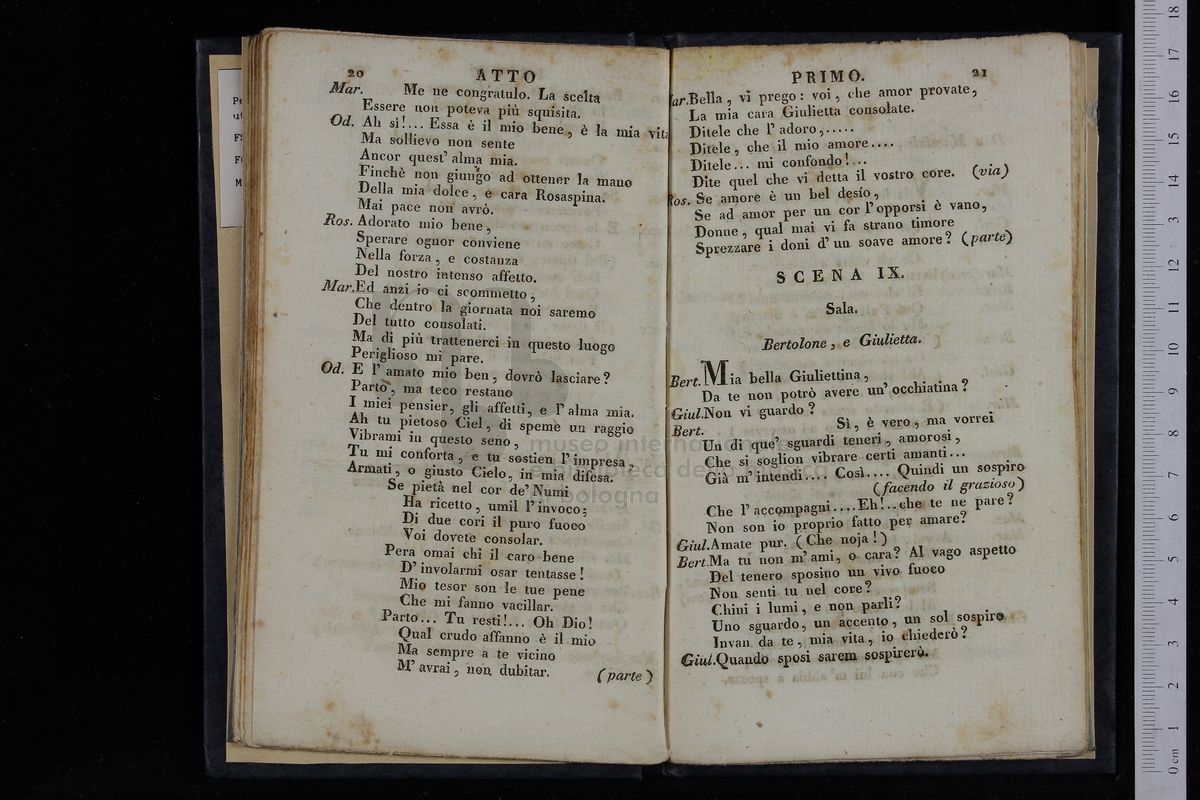 20 ATTO
Mar. Me ne congratulo. La scelta
Essere non poteva più squisita.
Od. Ah sì!... Essa è il mio bene, è la mia vita
Ma sollievo non sente
Ancor quest' alma mia.
Finchè non giungo ad ottener la mano
Della mia dolce, e cara Rosaspina.
Mai pace non avrò.
Ros. Adorato mio bene,
Sperare ognor conviene
Nella forza, e costanza
Del nostro intenso affetto.
Mar. Ed anzi io ci scommetto,
Che dentro la giornata noi saremo
Del tutto consolati.
Ma di più trattenerci in questo luogo
Periglioso mi pare.
Od. E l' amato mio ben, dovrò lasciare?
Parto, ma teco restano
I miei pensier, gli affetti, e l' alma mia.
Ah tu pietoso Ciel, di speme un raggio
Vibrami in questo seno,
Tu mi conforta, e tu sostien l' impresa,
Armati, o giusto Cielo, in mia difesa.
Se pietà nel cor de' Numi
Ha ricetto, umil l' invoco;
Di due cori il puro fuoco
Voi dovete consolar.
Pera omai chi il caro bene
D' involarmi osar tentasse!
Mio tesor son le tue pene
Che mi fanno vacillar.
Parto... Tu resti!... Oh Dio!
Qual crudo affanno è il mio
Ma sempre a te vicino
M' avrai, non dubitar. (parte)
PRIMO. 21
ar. Bella, vi prego: voi, che amor provate,
La mia cara Giulietta consolate.
Ditele che l' adoro,.....
Ditele, che il mio amore....
Ditele... mi confondo!...
Dite quel che vi detta il vostro core. (via)
Ros. Se amore è un bel desío,
Se ad amor per un cor l' opporsi è vano,
Donne, qual mai vi fa strano timore
Sprezzare i doni d' un soave amore? (parte)
SCENA IX.
Sala.
Bertolone, e Giulietta.
Bert. Mia bella Giuliettina,
Da te non potrò avere un' occhiatina?
Giul. Non vi guardo?
Bert. Sì, è vero, ma vorrei
Un di que' sguardi teneri, amorosi,
Che si soglion vibrare certi amanti...
Già m' intendi.... Così.... Quindi un sospiro
(facendo il grazioso)
Che l' accompagni....Eh!..che te ne pare?
Non son io proprio fatto per amare?
Giul. Amate pur. (Che noja!)
Bert. Ma tu non m' ami, o cara? Al vago aspetto
Del tenero sposino un vivo fuoco
Non senti tu nel core?
Chini i lumi, e non parli?
Uno sguardo, un accento, un sol sospiro
Invan da te, mia vita, io chiederò?
Giul. Quando sposi sarem sospirerò.